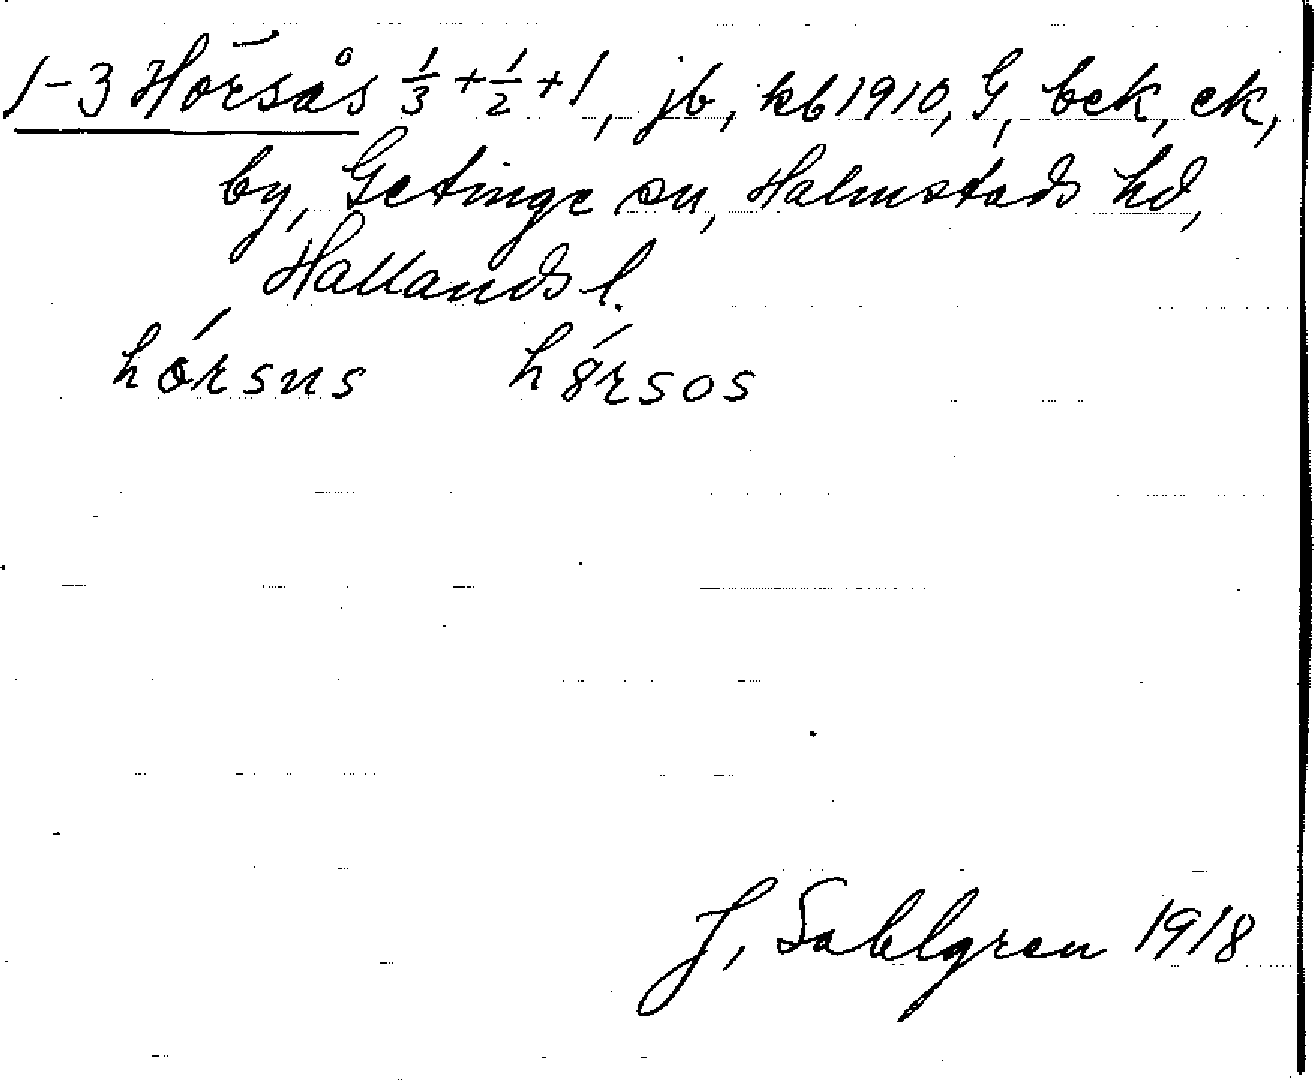 1-3 Hörsås 1/3 + 1/2 + 1, jb, kb 1910, G, bck, ek,
by, Getinge sn, Halmstads hd,
Hallands l.
J. Sahlgren 1918